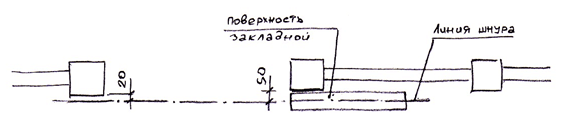 поверхность
закладной
Линия шнура
20
50